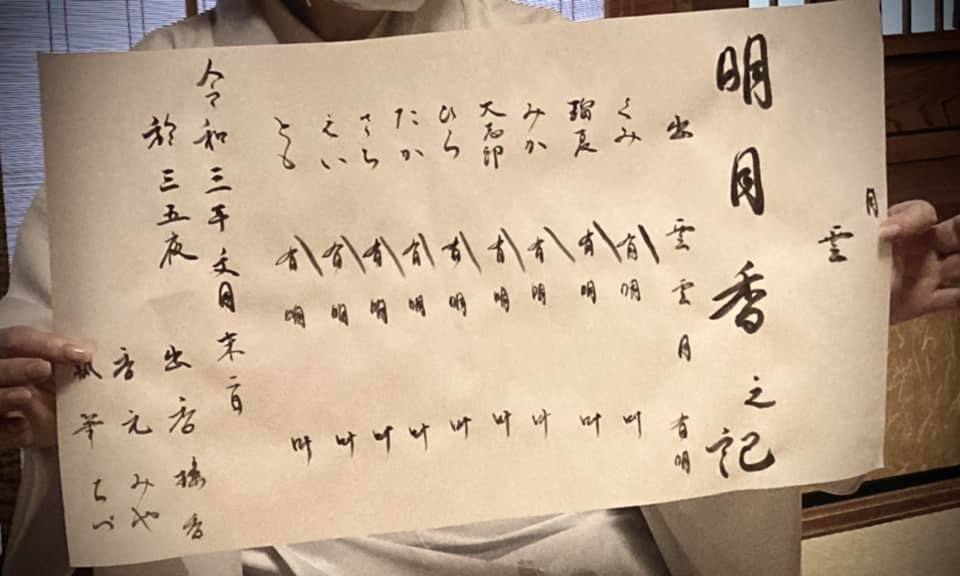 月
雲
明月香之記
出 雲 雲 月 有明
くみ 有 明 叶
瑠夏 有 明 叶
みか 有 明 叶
有 明 叶
ひろ 有 明 叶
たか 有 明 叶
さち 有 明 叶
えい 有 明 叶
とも 有 明 叶
令和三年文月末
於三五夜 出香 香
香元 みや
筆